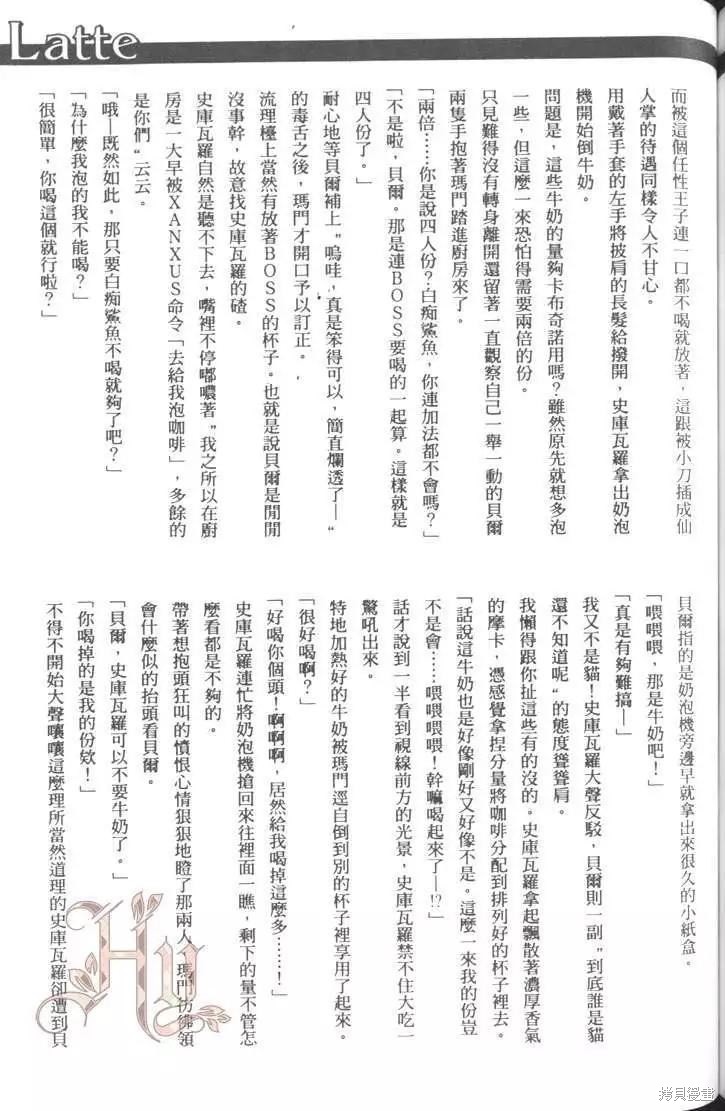 Latte
而被這個任性王子連一口都不喝就放著，這跟被小刀插成仙
人掌的待遇同樣令人不甘心。
用戴著手套的左手將披肩的長髮給撥開，史庫瓦羅拿出奶泡
機開始倒牛奶。
問題是，這些牛奶的量夠卡布奇諾用嗎？雖然原先就想多泡
一些，但這麼一來恐怕得需要兩倍的份。
只見難得沒有轉身離開還留著一直觀察自己一舉一動的貝爾
兩隻手抱著瑪門踏進廚房來了。
「兩倍……你是說四人份？白痴鯊魚，你連加法都不會嗎？」
「不是啦，貝爾。那是連ＢＯＳＳ要喝的一起算。這樣就是
四人份了。」
耐心地等貝爾補上〝嗚哇，真是笨得可以，簡直爛透了—〞
的毒舌之後，瑪門才開口予以訂正。
流理檯上當然有放著ＢＯＳＳ的杯子。也就是說貝爾是閒閒
沒事幹，故意找史庫瓦羅的碴。
史庫瓦羅自然是聽不下去，嘴裡不停嘟噥著〝我之所以在廚
房是一大早被ＸＡＮＸＵＳ命令「去給我泡咖啡」，多餘的
是你們〞云云。
「哦—既然如此，那只要白痴鯊魚不喝就夠了吧？」
「為什麼我泡的我不能喝？」
「很簡單，你喝這個就行啦？」
貝爾指的是奶泡機旁邊早就拿出來很久的小紙盒。
「喂喂喂，那是牛奶吧！」
「真是有夠難搞—」
我又不是貓！史庫瓦羅大聲反駁，貝爾則一副〝到底誰是貓
還不知道呢〞的態度聳聳肩。
我懶得跟你扯這些有的沒的。史庫瓦羅拿起飄散著濃厚香氣
的摩卡，憑感覺拿捏分量將咖啡分配到排列好的杯子裡去。
「話說這牛奶也是好像剛好又好像不是。這麼一來我的份豈
不是會……喂喂喂喂！幹嘛喝起來了—!?」
話才說到一半看到視線前方的光景，史庫瓦羅禁不住大吃一
驚吼出來。
特地加熱好的牛奶被瑪門逕自倒到別的杯子裡享用了起來。
「很好喝啊？」
「好喝你個頭！啊啊啊，居然給我喝掉這麼多……！」
史庫瓦羅連忙將奶泡機搶回來往裡面一瞧，剩下的量不管怎
麼看都是不夠的。
帶著想抱頭狂叫的憤恨心情狠狠地瞪了那兩人，瑪門彷彿領
會什麼似的抬頭看貝爾。
「貝爾，史庫瓦羅可以不要牛奶了。」
「你喝掉的是我的份欸！」
不得不開始大聲嚷嚷這麼理所當然道理的史庫瓦羅卻遭到貝
Hy
拷貝漫畫